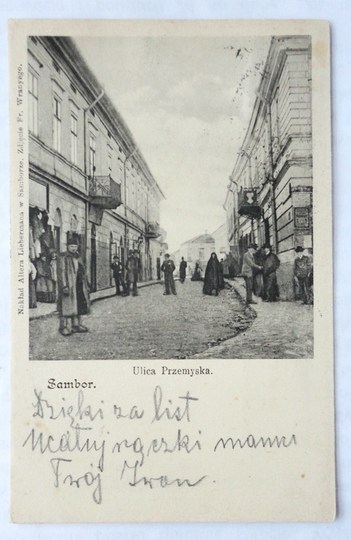 Nakład Altera Liebermana w Samborze. Zdjęcie Fr. Wrazyego.
Ulica Przemyska.
Sambor.
Dzięki za list
ucałuj rączki mamie
Twój Iwan.